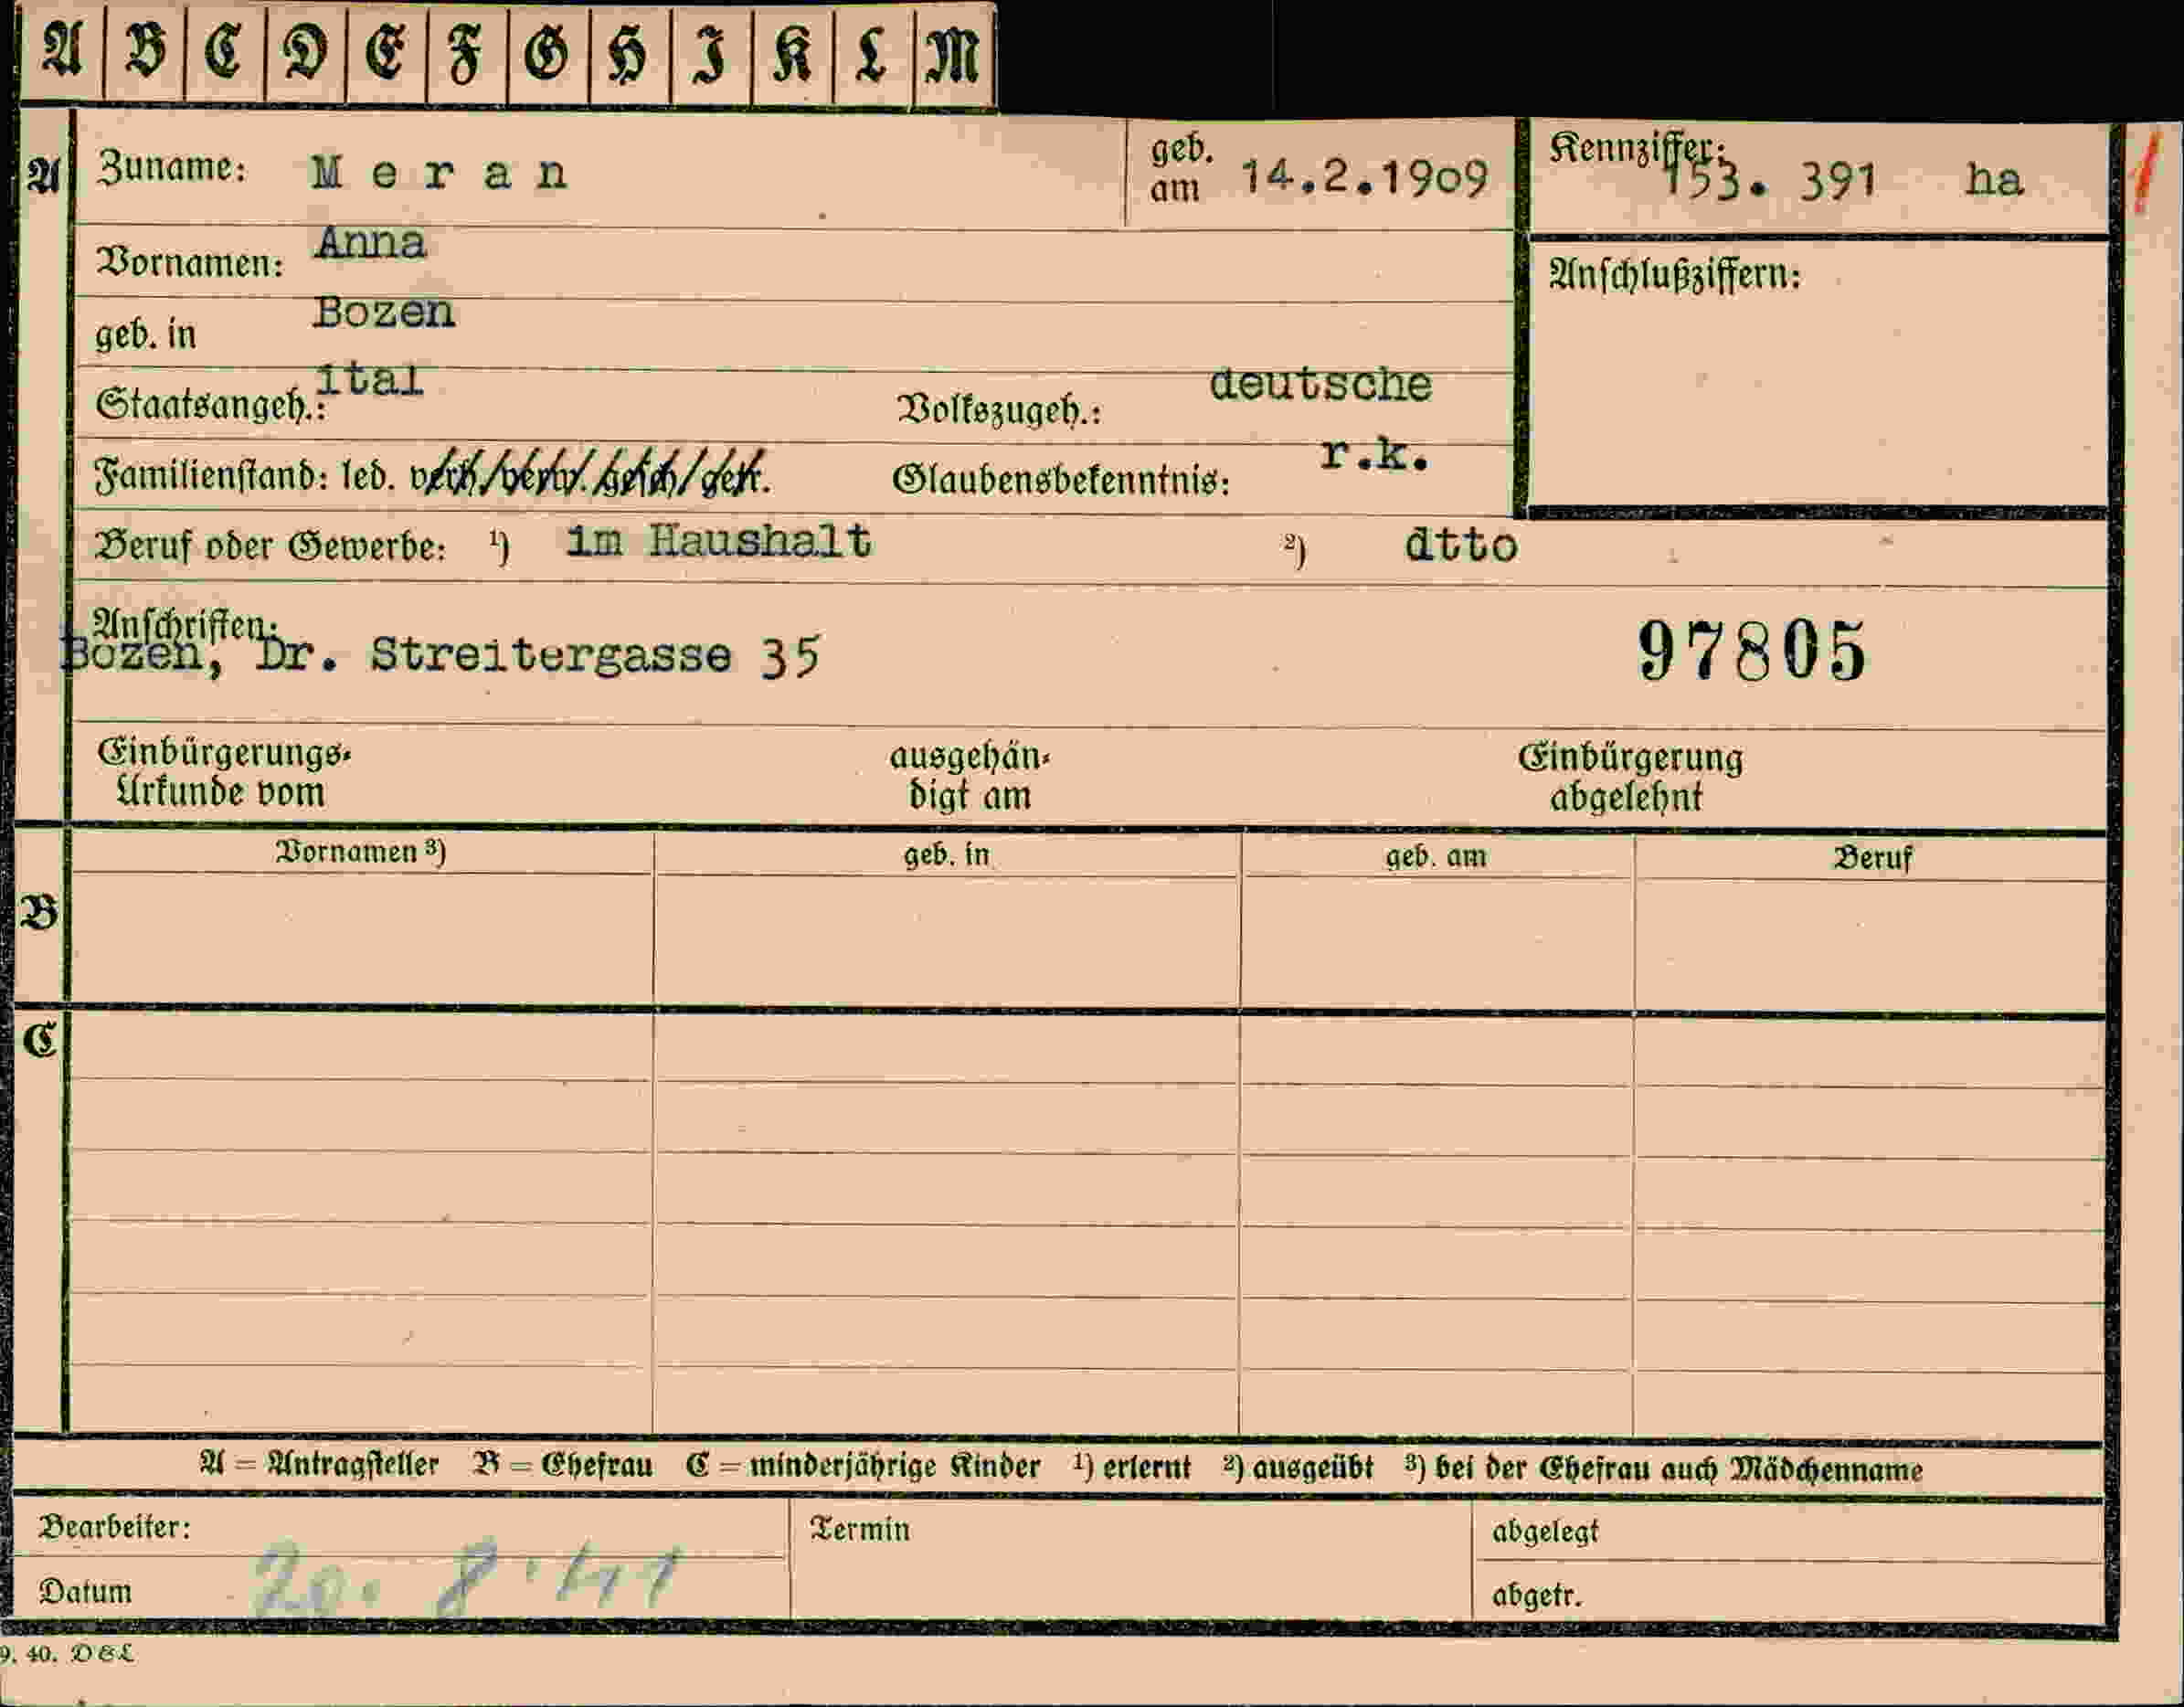 A B C D E F G H I K L M
A Zuname: Meran geb. am 14.2.1909 Kennziffer: 153. 391 ha
Vornamen: Anna Anschlußziffern:
geb. in Bozen
Staatsangeh.: ital Volkszugeh.: deutsche
Familienstand: led. verh./verw./gesch./getr. Glaubensbekenntnis: r.k.
Beruf oder Gewerbe: ¹) im Haushalt ²) dtto
Anschriften:
Bozen, Dr. Streitergasse 35 97805
Einbürgerungs- ausgehän- Einbürgerung
Urkunde vom digt am abgelehnt
Vornamen ³) geb. in geb. am Beruf
B
C
A = Antragsteller B = Ehefrau C = minderjährige Kinder ¹) erlernt ²) ausgeübt ³) bei der Ehefrau auch Mädchenname
Bearbeiter: Termin abgelegt
Datum 20. 8. 41 abgetr.
9. 40. D&L